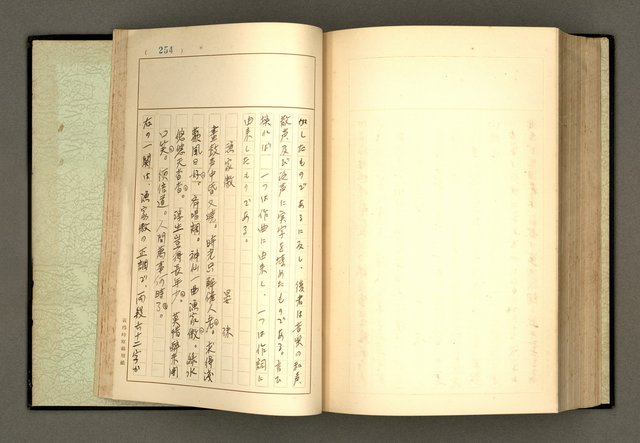 ( 254 )
加したものであるに反し、後者は音楽の和声
散声及び泛声に実字を填めたものである。言ひ
換れば、一つは作曲に由来し、一つは作詞に
由来したものである。
漁家傲　晏殊
畫鼓声中昏又曉。時光只解催人老。求得浅
歡風日好。齊唱調。神仙一曲漁家傲。緑水
悠悠天杳杳。浮生豈得長年少。莫惜醉来開
口笑。須信道。人間萬事何時了。
右の一闋は、漁家傲の正調で、両段六十二字か
原稿用紙